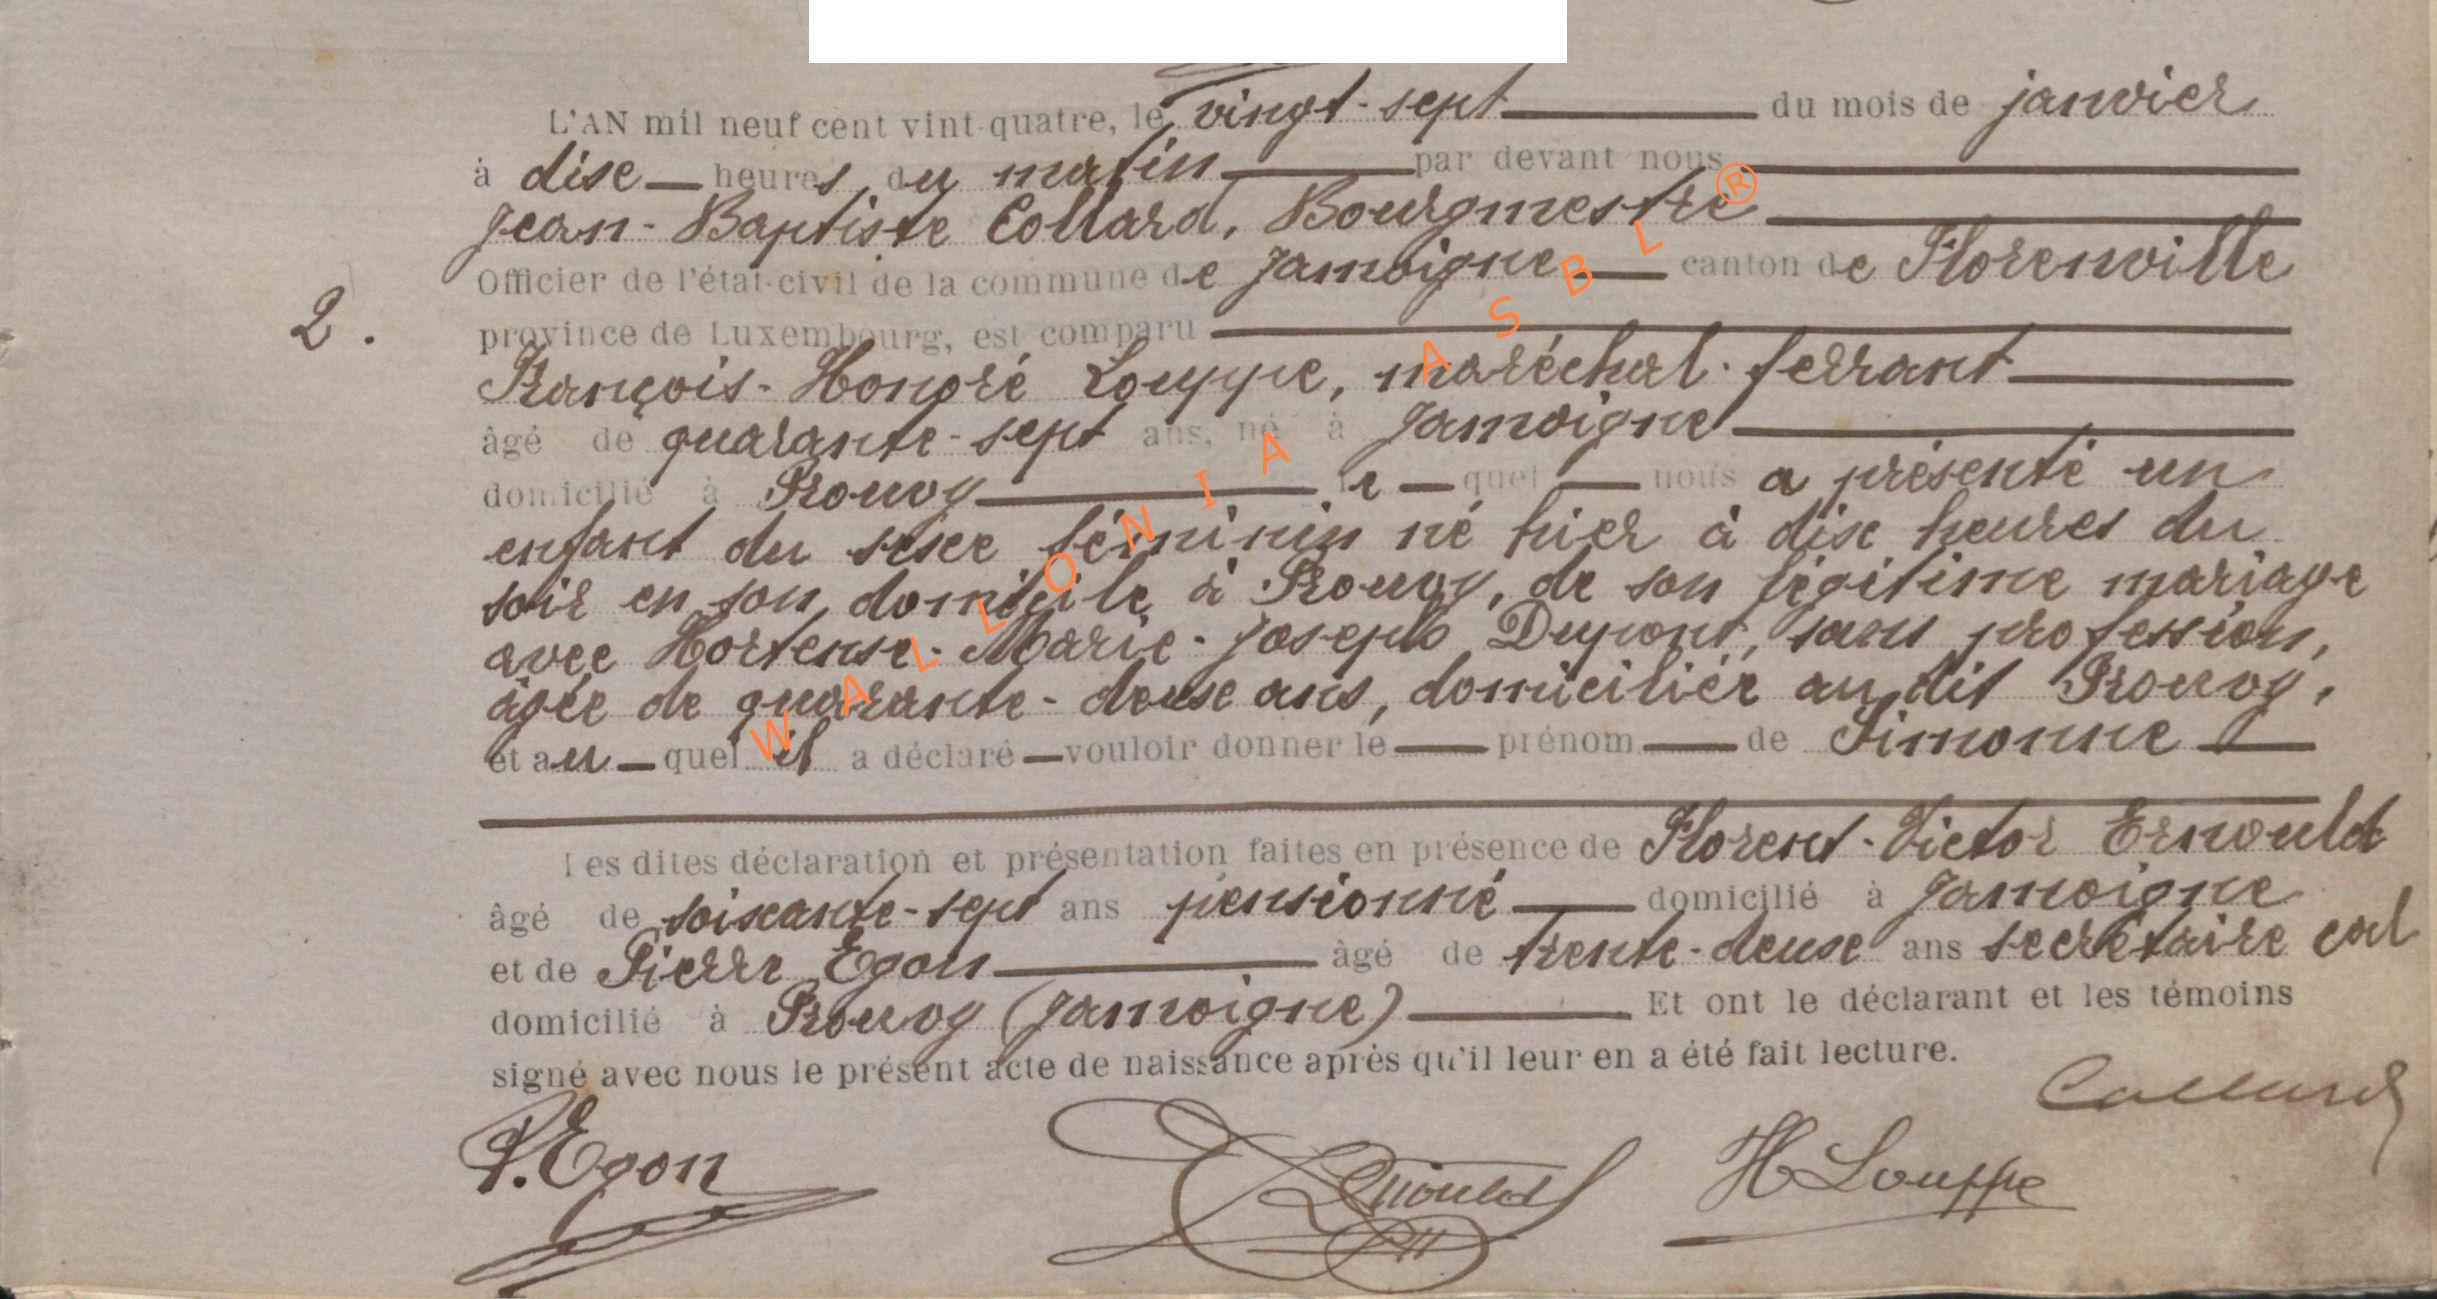 L'AN mil neuf cent vint-quatre, le vingt-sept du mois de janvier
à dix heures du matin par devant nous
Jean-Baptiste Collard, Bourgmestre
Officier de l'état-civil de la commune de Jamoigne canton de Florenville
2. province de Luxembourg, est comparu
François-Honoré Louppe, maréchal-ferrant
âgé de quarante-sept ans, né à Jamoigne
domicilié à Prouvy le quel nous a présenté un
enfant du sexe féminin né hier à dix heures du
soir en son domicile à Prouvy, de son légitime mariage
avec Hortense-Marie-Joseph Dupont, sans profession,
âgée de quarante-deux ans, domiciliée au dit Prouvy,
et au quel il a déclaré vouloir donner le prénom de Simonne
Les dites déclaration et présentation faites en présence de Florent-Victor Ernould
âgé de soixante-sept ans pensionné domicilié à Jamoigne
et de Pierre Egon âgé de trente-deux ans secrétaire cal
domicilié à Prouvy (Jamoigne) Et ont le déclarant et les témoins
signé avec nous le présent acte de naissance après qu'il leur en a été fait lecture.
Collard
P. Egon Ernould H Louppe
WALLONIA ASBL ®